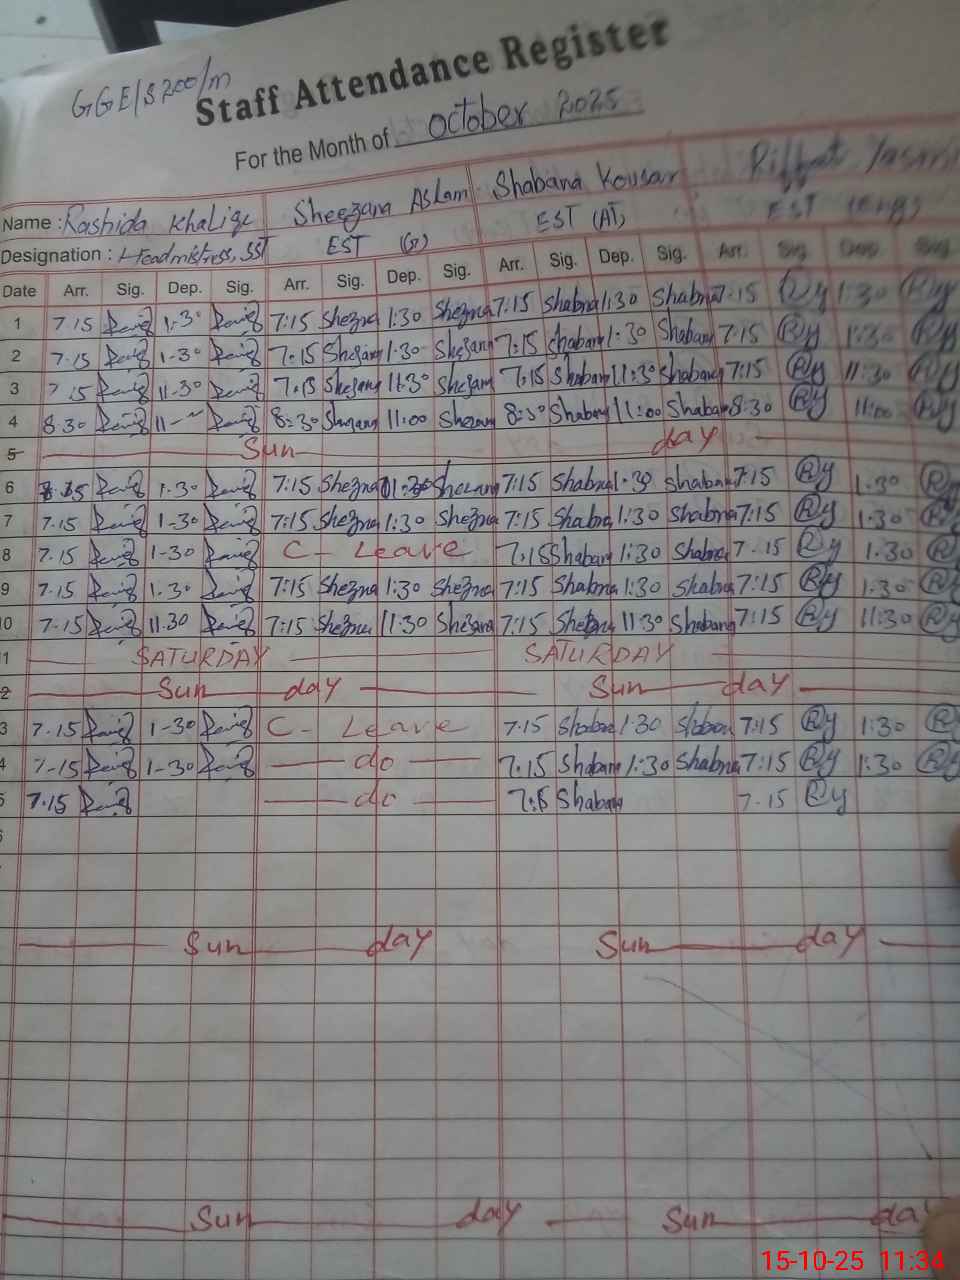 GGE/S 200/m
Staff Attendance Register
For the Month of October 2025
Name : Rashida Khaliqe Sheezana Aslam Shabana Kousar Riffat
Designation : Headmistress, SST EST (G) EST (AT) EST (Eng)
Date Arr. Sig. Dep. Sig. Arr. Sig. Dep. Sig. Arr. Sig. Dep. Sig. Arr. Sig. Dep. Sig.
1 7.15 1.30 7:15 Shezna 1:30 Shezna 7:15 Shabna 1:30 Shabna 7:15 Ry 1:30 Ry
2 7.15 1-30 7:15 1:30 7:15 Shabana 1:30 Shabana 7:15 Ry 1:30 Ry
3 7 15 11-30 11:30 7:15 Shabana 11:30 Shabana 7:15 Ry 11:30 Ry
4 8.30 8:30 11:00 8:30 Shabana 11:00 Shabana 8:30 Ry 11:00 Ry
5 Sun day
6 1.30 7:15 Shezna 7:15 Shabna 1.30 Shabana 7:15 Ry 1:30 Ry
7 7.15 1-30 7:15 Shezna 1:30 Shezna 7:15 Shabna 1:30 Shabna 7:15 Ry 1:30 Ry
8 7.15 1-30 C- Leave 7:15 Shabana 1:30 Shabna 7.15 Ry 1.30 R
9 7.15 1.30 7:15 Shezna 1:30 Shezna 7:15 Shabna 1:30 Shabna 7:15 Ry 1:30 R
10 7.15 11.30 7:15 Shezna 11:30 7:15 11:30 Shabana 7:15 Ry 11:30 Ry
1 SATURDAY SATURDAY
2 Sun day Sun day
3 7.15 1-30 C- Leave 7:15 Shabna 1:30 7:15 Ry 1:30 R
4 7-15 1-30 do 7.15 Shabana 1:30 Shabna 7:15 Ry 1:30 Ry
5 7.15 do Shabana 7.15 Ry
Sun day Sun day
Sun day Sun day
15-10-25 11:34